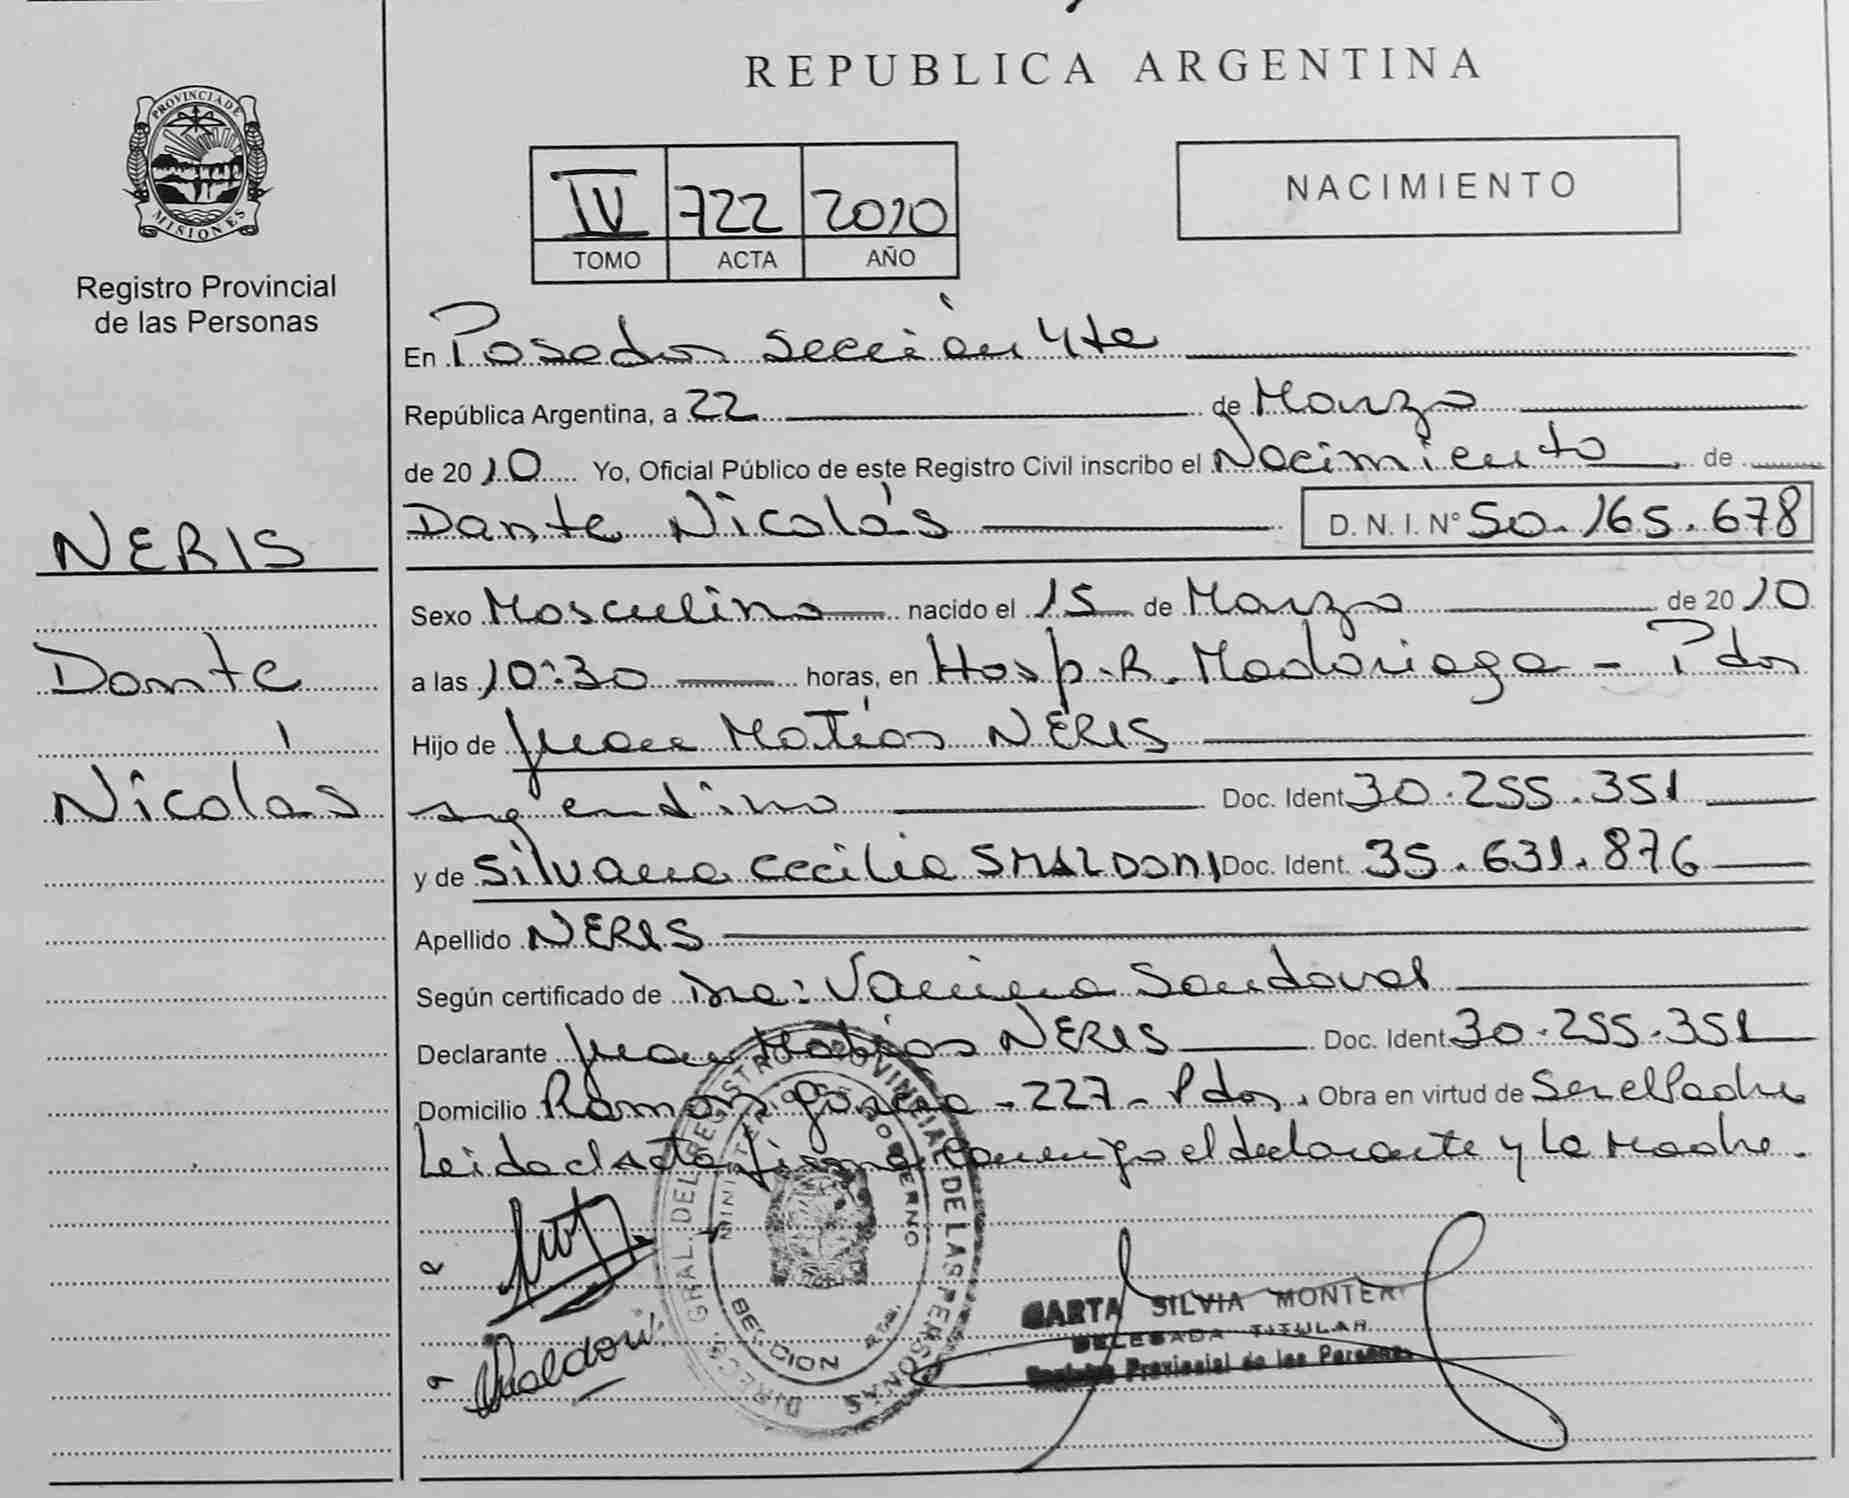 REPUBLICA ARGENTINA
PROVINCIA DE MISIONES
Registro Provincial
de las Personas
IV 722 2010
TOMO ACTA AÑO
NACIMIENTO
NERIS
Dante
Nicolás
En Posadas Sección 4ta
República Argentina, a 22 de Marzo
de 2010 Yo, Oficial Público de este Registro Civil inscribo el Nacimiento de
Dante Nicolás D. N. I. N° 50.165.678
Sexo Masculino nacido el 15 de Marzo de 2010
a las 10:30 horas, en Hosp. R. Madariaga - Pdas
Hijo de Juan Matías NERIS
argentino Doc. Ident 30.255.351
y de Silvana Cecilia SMALDONI Doc. Ident. 35.631.876
Apellido NERIS
Según certificado de Dra: Vanina Sandoval
Declarante Juan Matías NERIS Doc. Ident. 30.255.351
Domicilio Ramón García - 227 - Pdas. Obra en virtud de Ser el Padre
Leida el Acta firma conmigo el declarante y la Madre.
DIREC. GRAL. DEL REGISTRO PROVINCIAL DE LAS PERSONAS
MINISTERIO DE GOBIERNO
SECCION 4ta.
Smaldoni
SILVIA MONTERO
DELEGADA TITULAR
Registro Provincial de las Personas